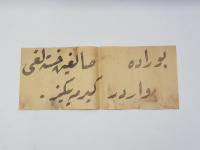 بوراده صالغین خسته‌لغی
واردر كیرمیكیز.